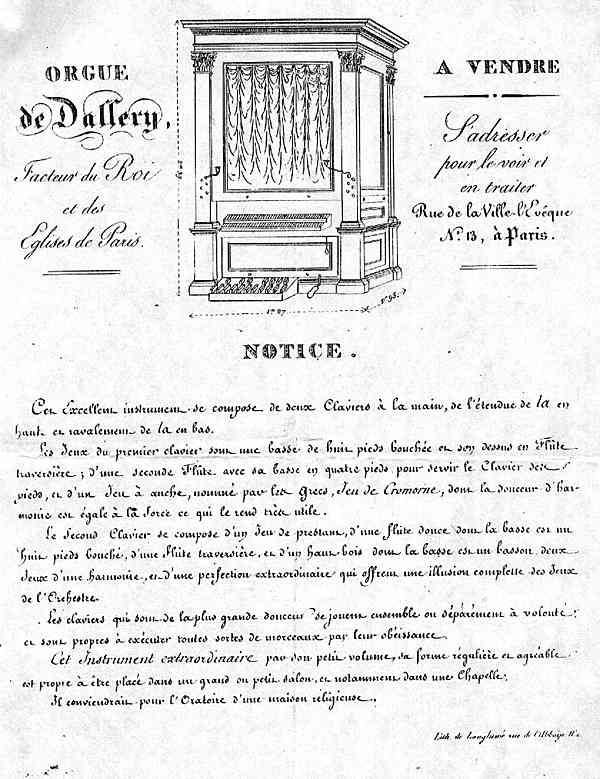 ORGUE
de Dallery,
Facteur du Roi
et des
Eglises de Paris.
A VENDRE
S'adresser
pour le voir et
en traiter
Rue de la Ville-l'Evéque
N.º 13, à Paris.
NOTICE.
Cet Excellent instrument se compose de deux Claviers à la main, de l'étendue de la en
haut et ravalement de la en bas.
Les Jeux du premier clavier sont une basse de huit pieds bouchée et son dessus en Flûte
traversière; d'une seconde Flûte avec sa basse en quatre pieds pour servir le Clavier des
pieds, et d'un Jeu à anche, nommé par les Grecs, Jeu de Cromorne, dont la douceur d'har-
monie est égale à la force ce qui le rend très utile.
Le Second Clavier se compose d'un Jeu de prestant, d'une flûte douce dont la basse est un
huit pieds bouché, d'une Flûte traversière, et d'un haut bois dont la basse est un basson deux
Jeux d'une harmonie, et d'une perfection extraordinaire qui offrent une illusion complette des Jeux
de l'Orchestre.
Les claviers qui sont de la plus grande douceur se jouent ensemble ou séparément à volonté;
et sont propres à exécuter toutes sortes de morceaux par leur obéissance.
Cet Instrument extraordinaire par son petit volume, sa forme régulière et agréable
est propre à être placé dans un grand ou petit salon, et notamment dans une Chapelle;
Il conviendrait pour l'Oratoire d'une maison religieuse.
Lith. de Langlumé rue de l'Abbaye